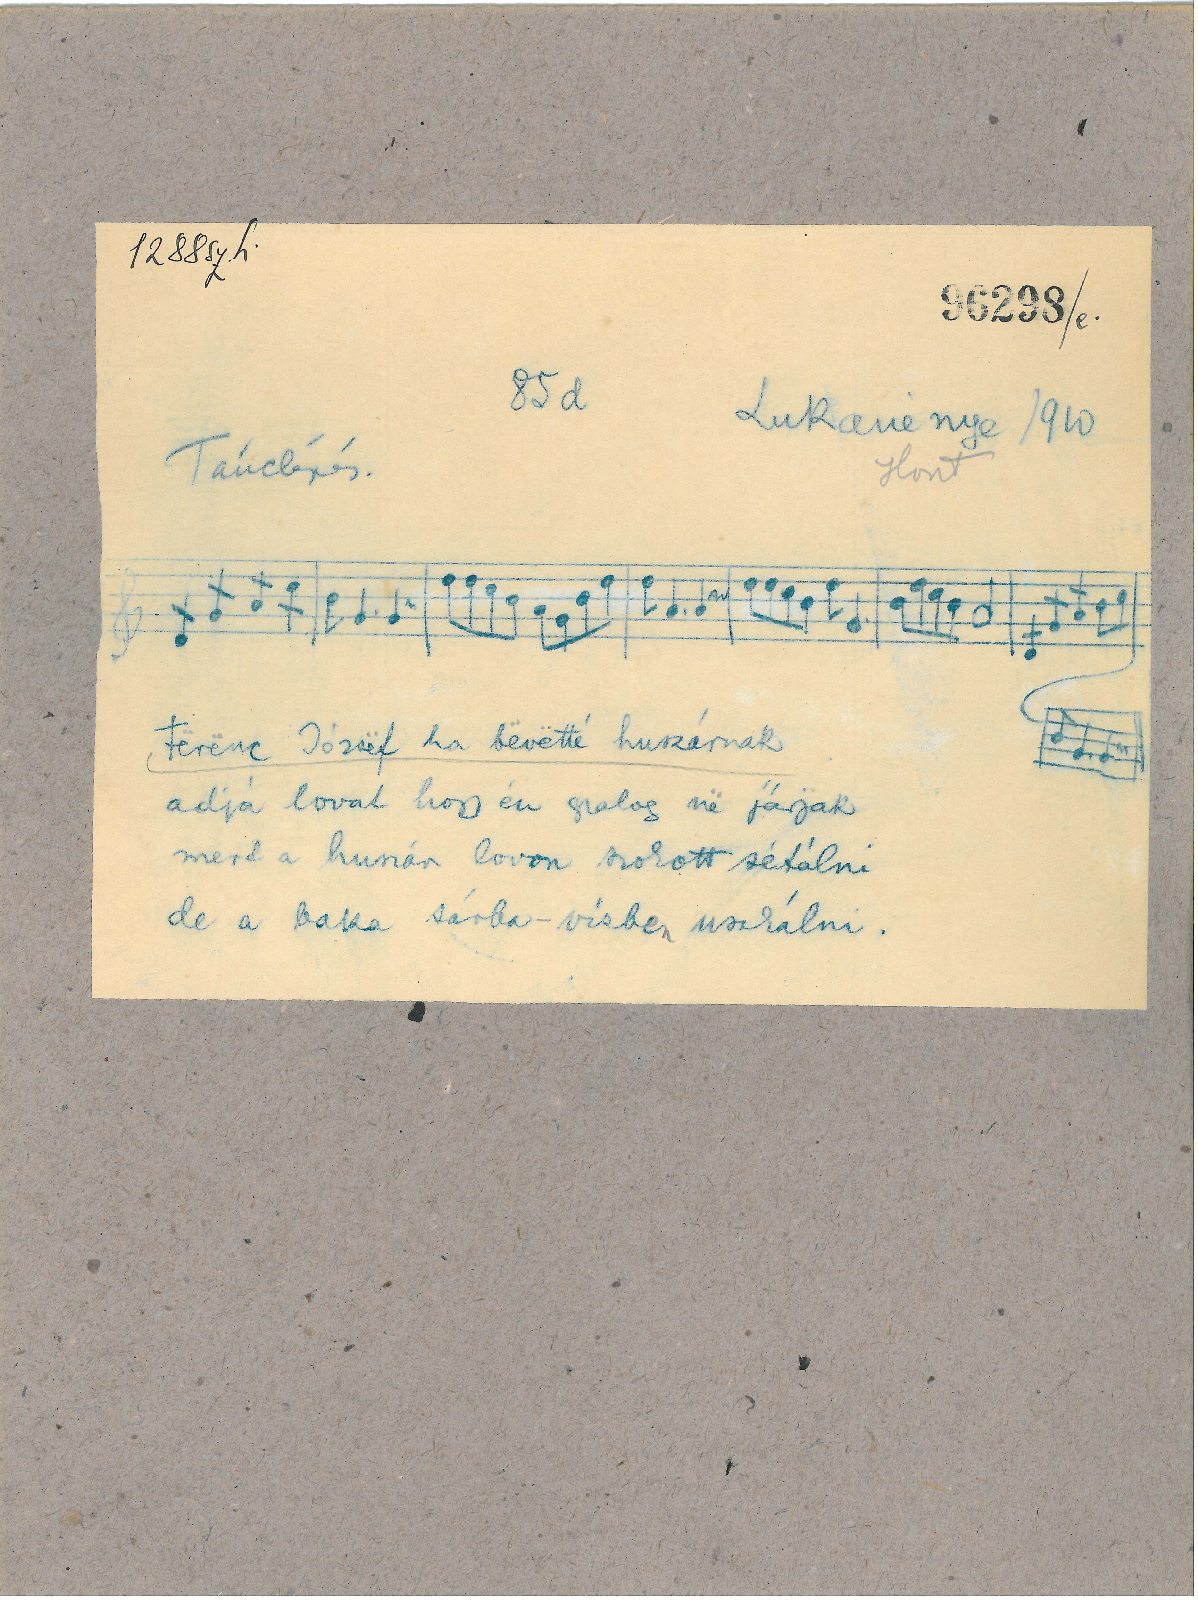 1288 sz. h.
96298/e.
85d
Lukanénye 1910
Tánclépés.
Hont
Fërënc Józsëf ha bëvëtté huszárnak
adjá lovat hogy én gyalog në járjak
mert a huszár lovon szokott sétálni
de a baka sárba-vízben uszkálni.